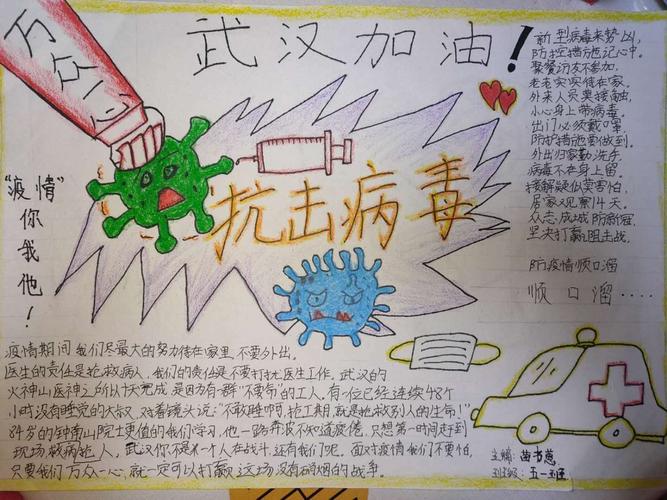 万众一心
武汉加油！
"疫情"
你
我
他
！
抗击病毒
新型病毒来势凶，
防控措施记心中。
聚餐访友不参加，
老老实实待在家。
外来人员莫接触，
小心身上带病毒。
出门必须戴口罩，
防护措施要做到。
外出归家勤洗手，
病毒不在身上留。
接触疑似莫害怕，
居家观察14天。
众志成城防新冠，
坚决打赢阻击战。
防疫情顺口溜
顺口溜....
疫情期间我们尽最大的努力待在家里，不要外出。
医生的责任是抢救病人，我们的责任是不要打扰医生工作。武汉的
火神山医神之所以十天完成是因为有一群"不要命"的工人，有一位已经连续48个
小时没有睡觉的大叔，对着镜头说："不敢睡啊，抢工期，就是抢救别人的生命！"
84岁的钟南山院士更值的我们学习，他一路奔波不知道疲倦，只想第一时间赶到
现场救病抢人，武汉你不是一个人在战斗，还有我们呢。面对疫情我们不要怕，
只要我们万众一心，就一定可以打赢这场没有硝烟的战争。
主编：苗书慈
班级：五一班